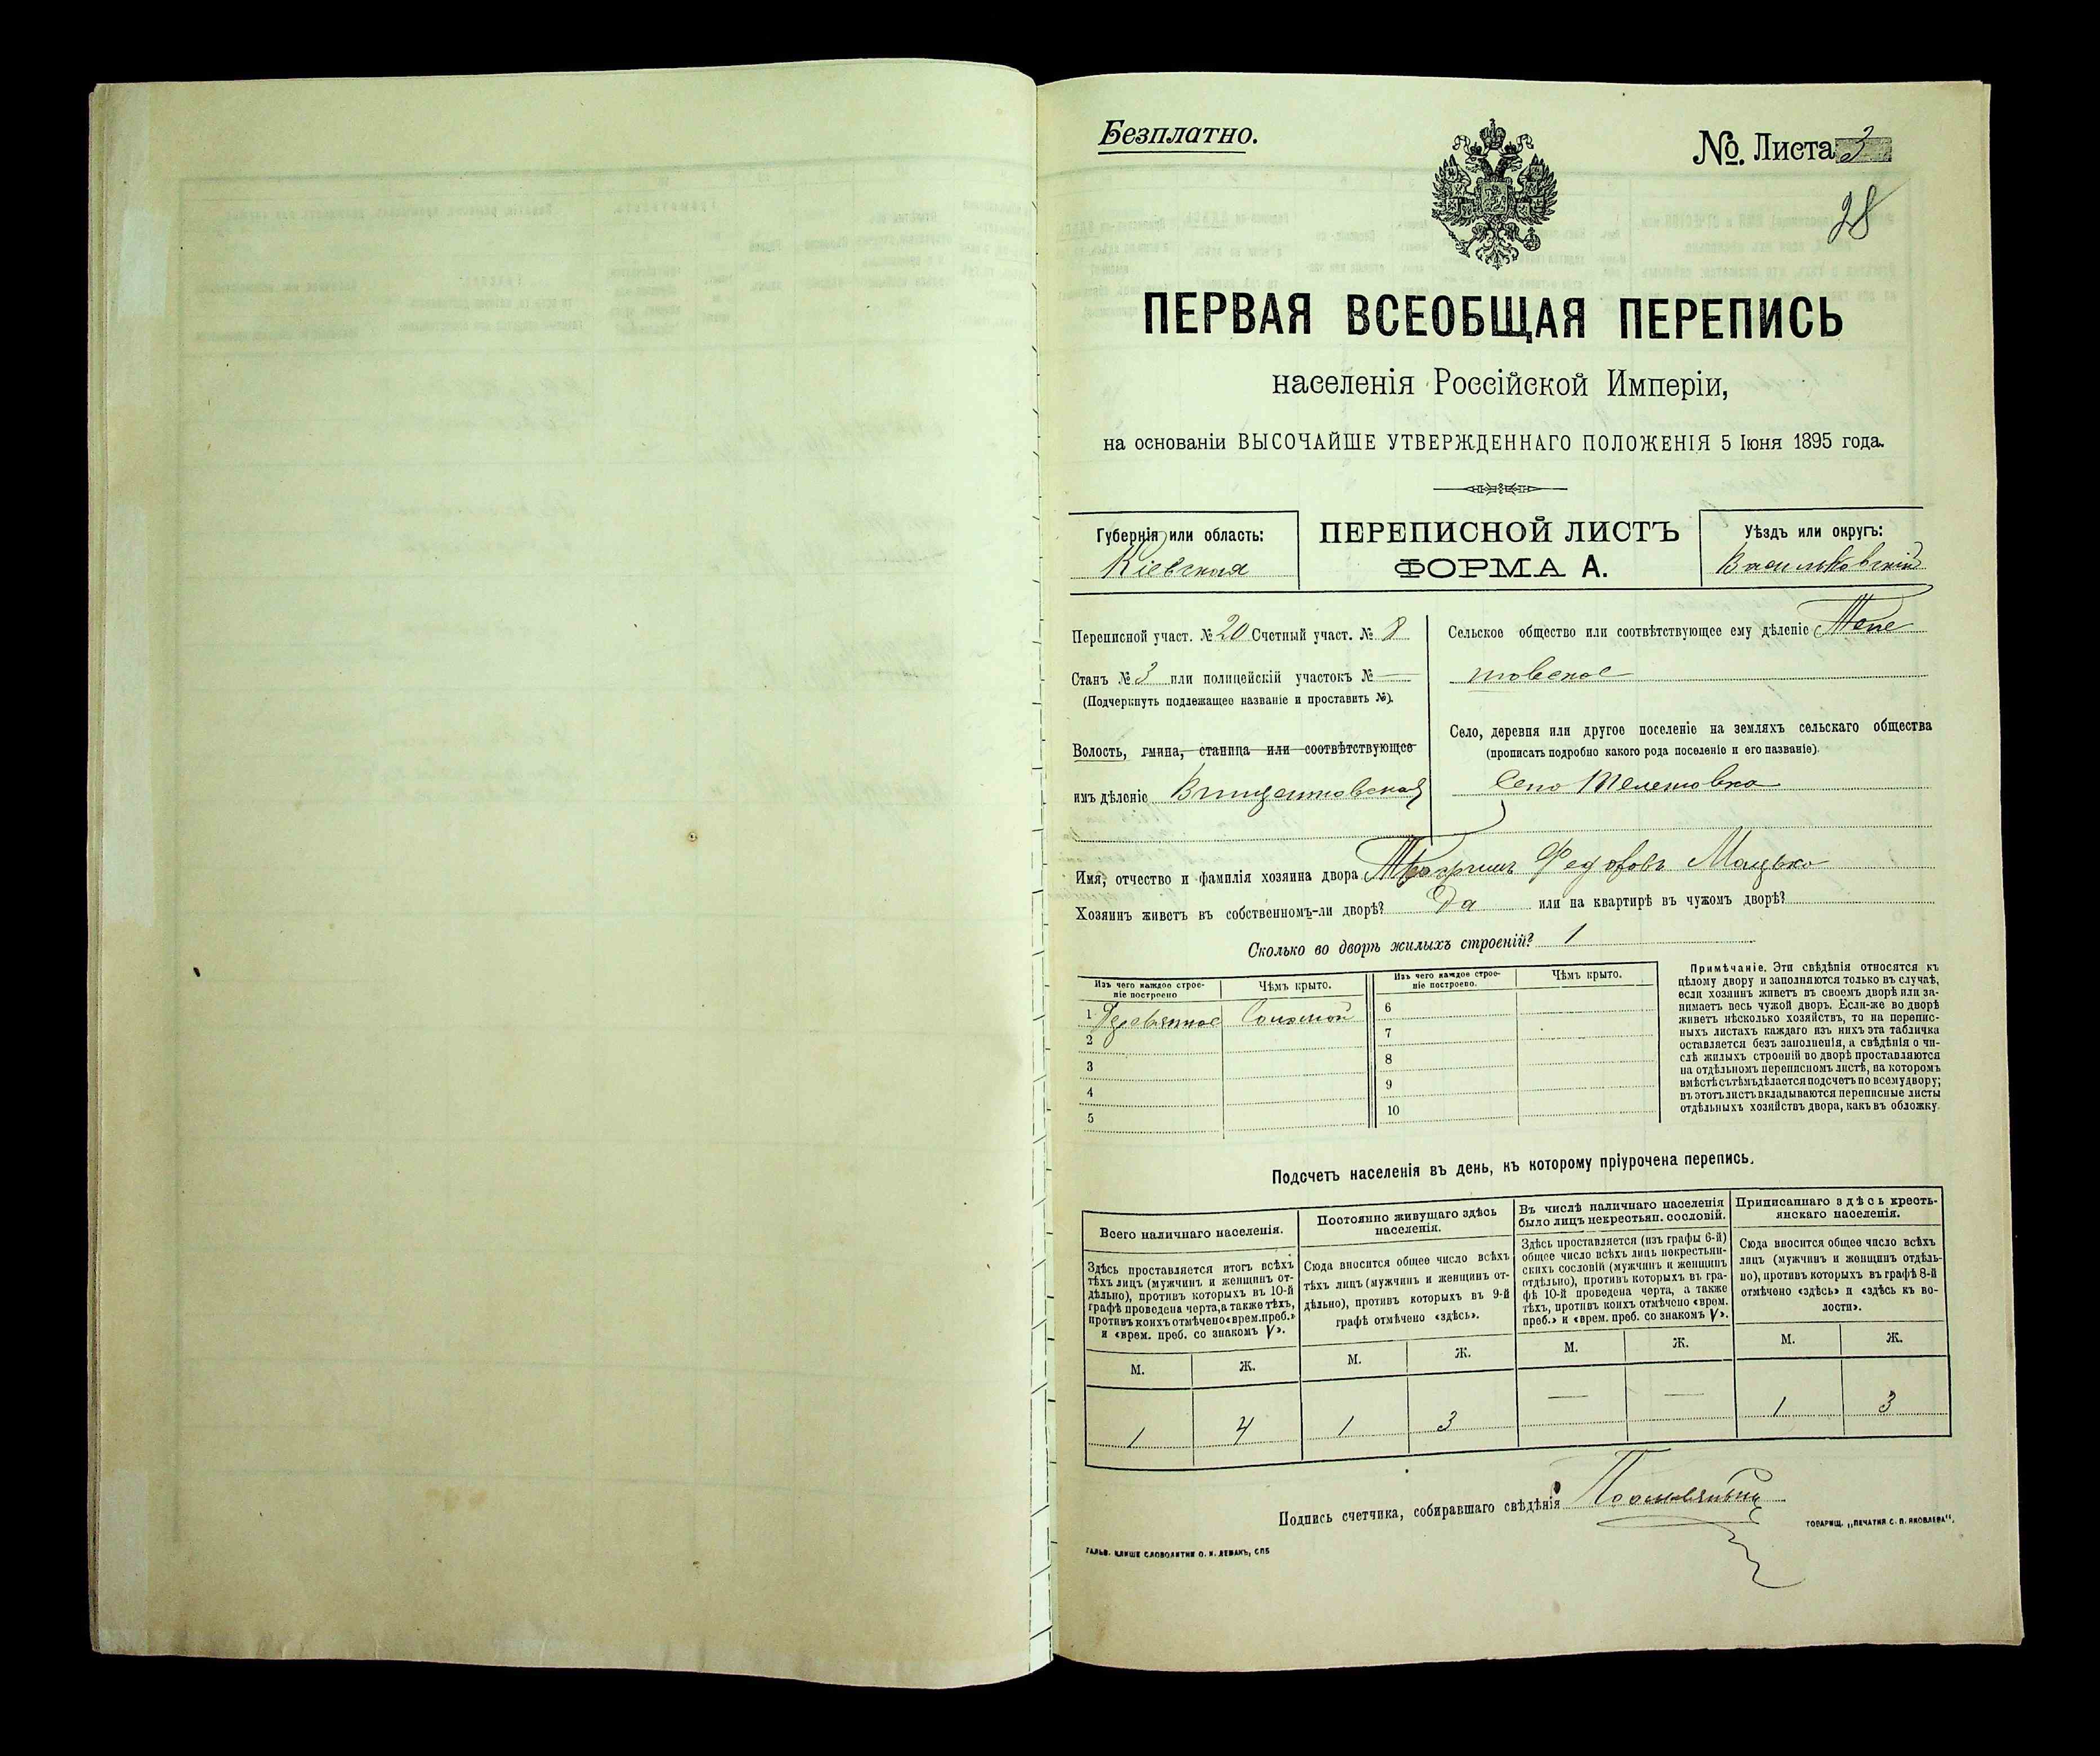 Безплатно.
№ Листа 3
28
ПЕРВАЯ ВСЕОБЩАЯ ПЕРЕПИСЬ
населенія Россійской Имперіи,
на основаніи ВЫСОЧАЙШЕ УТВЕРЖДЕННАГО ПОЛОЖЕНІЯ 5 Іюня 1895 года.
Губернія или область:
Кіевская
ПЕРЕПИСНОЙ ЛИСТЪ
ФОРМА А.
Уѣздъ или округъ:
Васильковскій
Переписной участ. № 20 Счетный участ. № 8
Станъ № 3 или полицейскій участокъ № —
(Подчеркнуть подлежащее названіе и проставить №).
Волость, гмина, станица или соотвѣтствующее
имъ дѣленіе Винцентовская
Сельское общество или соотвѣтствующее ему дѣленіе Теле
шовское
Село, деревня или другое поселеніе на земляхъ сельскаго общества
(прописать подробно какого рода поселеніе и его названіе).
Село Телешовка
Имя, отчество и фамилія хозяина двора Федоровъ Мацько
Хозяинъ живетъ въ собственномъ-ли дворѣ? Да или на квартирѣ въ чужомъ дворѣ?
Сколько во дворѣ жилыхъ строеній? 1
Изъ чего каждое строе-
ніе построено
Чѣмъ крыто.
Изъ чего каждое строе-
ніе построено.
Чѣмъ крыто.
1 Деревянное Соломой
2
3
4
5
6
7
8
9
10
Примѣчаніе. Эти свѣдѣнія относятся къ
цѣлому двору и заполняются только въ случаѣ,
если хозяинъ живетъ въ своемъ дворѣ или за-
нимаетъ весь чужой дворъ. Если-же во дворѣ
живетъ нѣсколько хозяйствъ, то на перепис-
ныхъ листахъ каждаго изъ нихъ эта табличка
оставляется безъ заполненія, а свѣдѣнія о чи-
слѣ жилыхъ строеній во дворѣ проставляются
на отдѣльномъ переписномъ листѣ, на которомъ
вмѣстѣ съ тѣмъ дѣлается подсчетъ по всему двору;
въ этотъ листъ вкладываются переписные листы
отдѣльныхъ хозяйствъ двора, какъ въ обложку.
Подсчетъ населенія въ день, къ которому пріурочена перепись.
Всего наличнаго населенія.
Здѣсь проставляется итогъ всѣхъ
тѣхъ лицъ (мужчинъ и женщинъ от-
дѣльно), противъ которыхъ въ 10-й
графѣ проведена черта, а также тѣхъ,
противъ коихъ отмѣчено «врем. преб.»
и «врем. преб. со знакомъ V».
Постоянно живущаго здѣсь
населенія.
Сюда вносится общее число всѣхъ
тѣхъ лицъ (мужчинъ и женщинъ от-
дѣльно), противъ которыхъ въ 9-й
графѣ отмѣчено «здѣсь».
Въ числѣ наличнаго населенія
было лицъ некрестьян. сословій.
Здѣсь проставляется (изъ графы 6-й)
общее число всѣхъ лицъ некрестьян-
скихъ сословій (мужчинъ и женщинъ
отдѣльно), противъ которыхъ въ гра-
фѣ 10-й проведена черта, а также
тѣхъ, противъ коихъ отмѣчено «врем.
преб.» и «врем. преб. со знакомъ V».
Приписаннаго здѣсь кресть-
янскаго населенія.
Сюда вносится общее число всѣхъ
лицъ (мужчинъ и женщинъ отдѣль-
но), противъ которыхъ въ графѣ 8-й
отмѣчено «здѣсь» и «здѣсь къ во-
лости».
М. Ж. М. Ж. М. Ж. М. Ж.
1 4 1 3 — — 1 3
Подпись счетчика, собиравшаго свѣдѣнія
ГАЛЬВ. КЛИШЕ СЛОВОЛИТНИ О. И. ЛЕМАНЪ, СПБ
ТОВАРИЩ. „ПЕЧАТНЯ С. П. ЯКОВЛЕВА“.